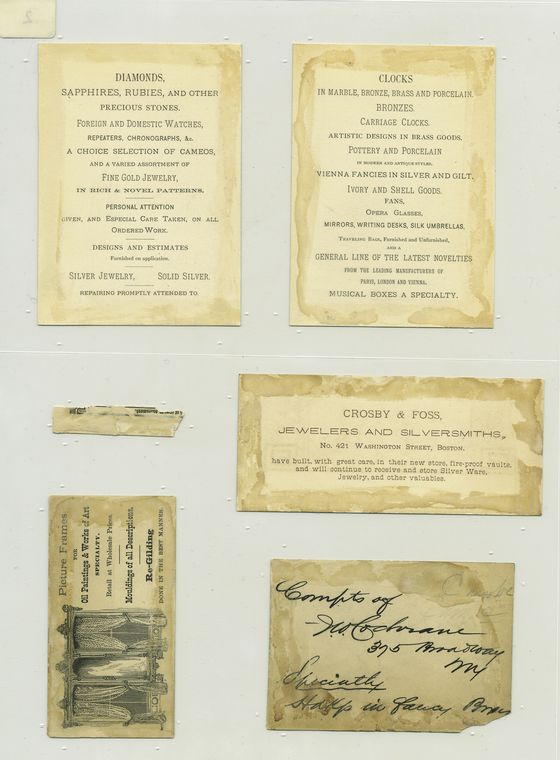 2
DIAMONDS,
SAPPHIRES, RUBIES, AND OTHER
PRECIOUS STONES.
FOREIGN AND DOMESTIC WATCHES,
REPEATERS, CHRONOGRAPHS, &c.
A CHOICE SELECTION OF CAMEOS,
AND A VARIED ASSORTMENT OF
FINE GOLD JEWELRY,
IN RICH & NOVEL PATTERNS.
PERSONAL ATTENTION
GIVEN, AND ESPECIAL CARE TAKEN, ON ALL
ORDERED WORK.
DESIGNS AND ESTIMATES
Furnished on application.
SILVER JEWELRY, SOLID SILVER.
REPAIRING PROMPTLY ATTENDED TO.
CLOCKS
IN MARBLE, BRONZE, BRASS AND PORCELAIN.
BRONZES.
CARRIAGE CLOCKS.
ARTISTIC DESIGNS IN BRASS GOODS.
POTTERY AND PORCELAIN
IN MODERN AND ANTIQUE STYLES.
VIENNA FANCIES IN SILVER AND GILT.
IVORY AND SHELL GOODS.
FANS,
OPERA GLASSES,
MIRRORS, WRITING DESKS, SILK UMBRELLAS,
TRAVELING BAGS, Furnished and Unfurnished,
AND A
GENERAL LINE OF THE LATEST NOVELTIES
FROM THE LEADING MANUFACTURERS OF
PARIS, LONDON AND VIENNA.
MUSICAL BOXES A SPECIALTY.
CROSBY & FOSS,
JEWELERS AND SILVERSMITHS,
No. 421 WASHINGTON STREET, BOSTON,
have built, with great care, in their new store, fire-proof vaults,
and will continue to receive and store Silver Ware,
Jewelry, and other valuables.
Picture Frames
FOR
Oil Paintings & Works of Art
SPECIALTY.
Retail at Wholesale Prices.
Mouldings of all Descriptions.
Re-Gilding
DONE IN THE BEST MANNER.
Compts of
Cochrane
375 Broadway
NY
Specialty
in Fancy